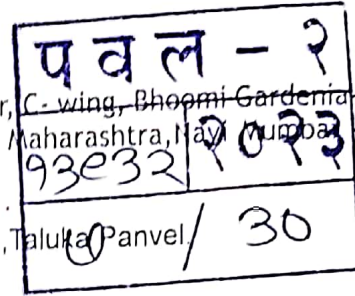 प व ल - २
r, C- wing, Bhoomi Gardenia
Maharashtra, Navi Mumbai
१३९३२ २०२३
,Taluka Panvel
७ / ३०